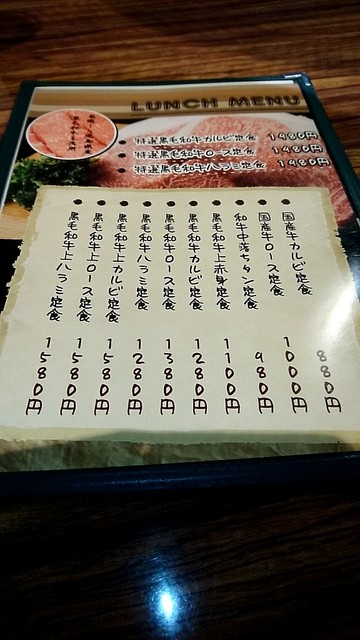 LUNCH MENU
特選黒毛和牛カルビ定食 1980円
特選黒毛和牛ロース定食 1980円
特選黒毛和牛ハラミ定食 1980円
国産牛カルビ定食 880円
国産牛ロース定食 1000円
和牛中落ちタン定食 980円
黒毛和牛上赤身定食 1100円
黒毛和牛カルビ定食 1280円
黒毛和牛ロース定食 1380円
黒毛和牛ハラミ定食 1280円
黒毛和牛上カルビ定食 1580円
黒毛和牛上ロース定食 1580円
黒毛和牛上ハラミ定食 1580円